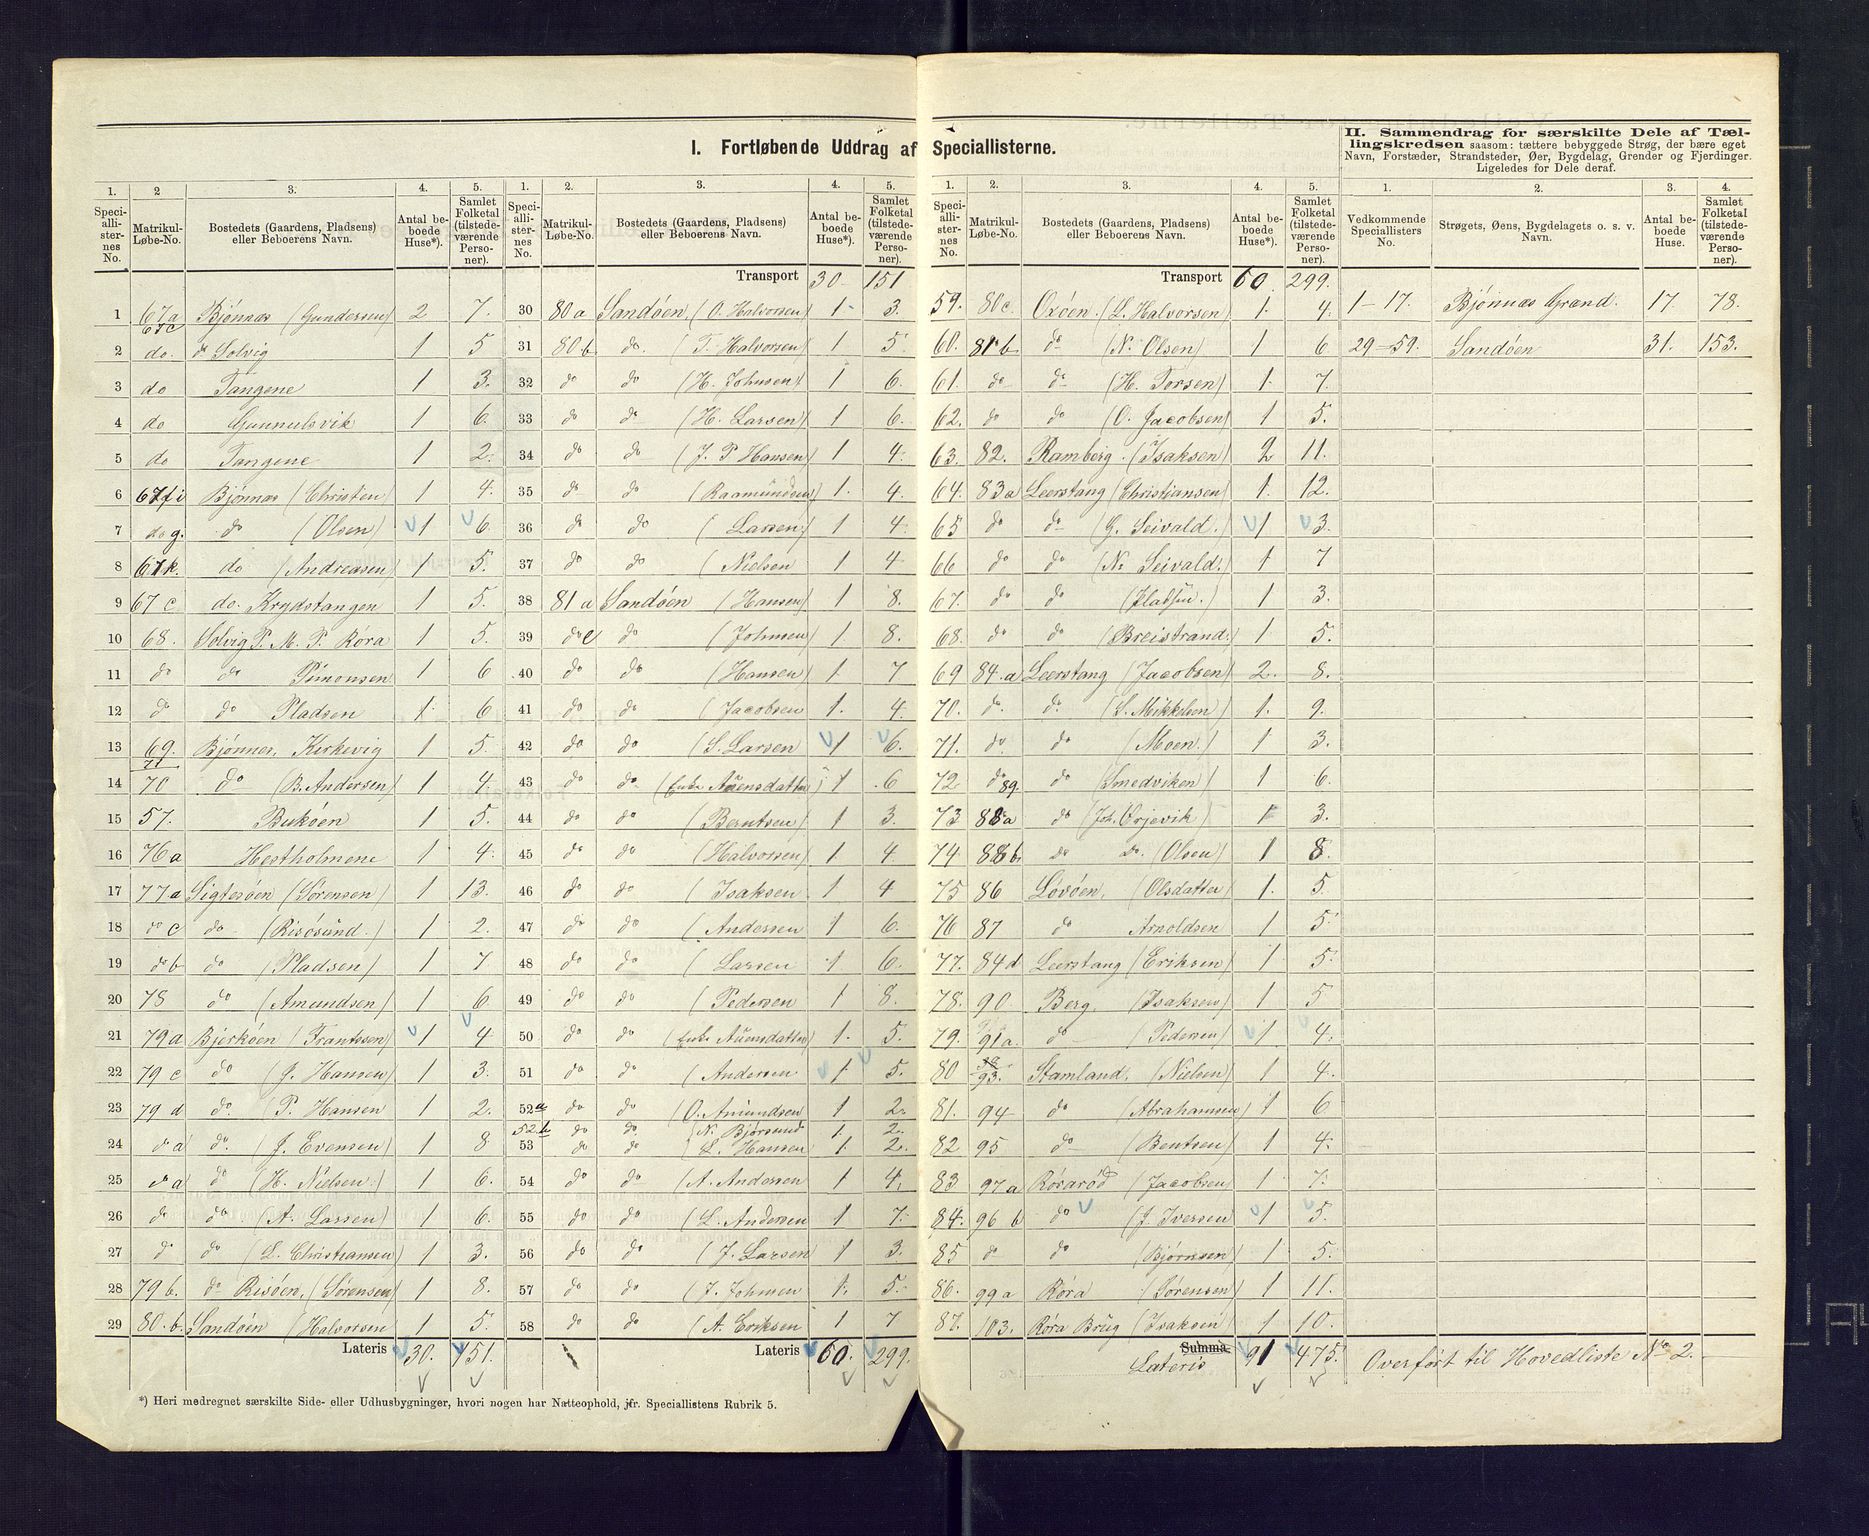 I. Fortløbende Uddrag af Speciallisterne.
II. Sammendrag for særskilte Dele af Tællingskredsen saasom: tættere bebyggede Strøg, der bære eget Navn, Forstæder, Strandsteder, Øer, Bygdelag, Grender og Fjerdinger. Ligeledes for Dele deraf.
1. 2 3. 4. 5.
Speciallisternes No. Matrikul-Løbe-No. Bostedets (Gaardens, Pladsens) eller Beboerens Navn. Antal beboede Huse*). Samlet Folketal (tilstedeværende Personer).
1 67a 67c Bjönnes (Gundersen) 2 7.
2 do. do Solvig 1 5
3 do Tangene 1 3.
4 do Gunnulsvik 1 6.
5 do Tangene 1 2.
6 67f i Bjönnes (Christen) 1 4.
7 do g. do (Olsen) 1 6.
8 67k. do (Andreasen) 1 5.
9 67 c do. Krydstangen 1 5.
10 68. Solvig P. M. P. Röra 1 5.
11 do do Simonsen 1 6
12 do do Pladsen 1 6
13 69. Bjönnes, Kirkevig 1 5.
14 71 70 do (B. Andersen) 1 4.
15 57. Buköen 1 5.
16 76a Hestholmene 1 4.
17 77a Sigtesöen (Sörensen) 1 13.
18 do c do (Risösund.) 1 2.
19 do b do (Pladsen) 1 7
20 78 do (Amundsen) 1 6.
21 79a Bjerköen (Frantssen) 1 4.
22 79 c do (J. Hansen) 1 3.
23 79 d do. P. Hansen 1 2.
24 do a do. (J. Evensen) 1 8
25 do a do (H. Nielsen.) 1 6.
26 do do (A. Larsen) 1 6.
27 do do (L. Christiansen) 1 3.
28 79 b. do Risöen, (Sörensen) 1 8.
29 80. b. Sandöen (Halvorsen 1 5.
Lateris 30. 151.
1. 2. 3. 4. 5.
Speciallisternes No. Matrikul-Løbe-No. Bostedets (Gaardens, Pladsens) eller Beboerens Navn. Antal beboede Huse*). Samlet Folketal (tilstedeværende Personer).
Transport 30. 151
30 80a Sandöen, (O. Halvorsen) 1. 3.
31 80b do T. Halvorsen) 1 5.
32 do do (H. Johnsen) 1 6.
33 do do (H. Larsen) 1 6.
34 do do (J. P Hansen) 1 4.
35 do do (Raamundsen) 1. 4.
36 do do (Larsen) 1 4.
37 do do (Nielsen 1 4
38 81a Sandöen (Hansen) 1 8.
39 do c do (Johnsen) 1. 8.
40 do do (Hansen) 1 7
41 do do (Jacobsen 1. 4.
42 do do (S. Larsen 1 6.
43 do do. (Enke Auensdatter) 1 6
44 do do (Berntsen) 1 3.
45 do do (Halvorsen) 1 4
46 do do Isaksen 1 4
47 do do (Andersen 1 6.
48 do do (Larsen 1 6.
49 do do (Pedersen 1 8.
50 do do (Enke Auensdatter) 1. 5.
51 do do (Andersen 1. 5.
52a do do (O. Amundsen 1 2.
52b do do (N. Björsund 1. 2.
53 do do (L. Hansen 1. 2.
54 do do (A. Andersen 1 4.
55 do do (L. Andersen 1 7.
56 do do (J. Larsen) 1 3.
57 do do (J. Johnsen 1. 5.
58 do do (A. Eriksen 1 7
Lateris 60. 299.
1. 2. 3. 4. 5.
Speciallisternes No. Matrikul-Løbe-No. Bostedets (Gaardens, Pladsens) eller Beboerens Navn. Antal beboede Huse*). Samlet Folketal (tilstedeværende Personer).
Transport 60. 299.
59. 80c. Oxöen. (L. Halvorsen) 1. 4.
60. 81b do (N. Olsen) 1 6.
61. do do (H. Torsen) 1. 7.
62. do do (O. Jacobsen) 1 5.
63. 82. Ramberg. (Isaksen) 2 11.
64. 83a Leerstang (Christiansen) 1. 12.
65 do do (G. Seivald.) 1 3.
66 do do (N. Seivald.) 1 7
67. do do 1 3.
68. do do (Breistrand.) 1 5.
69 84.a Leerstang (Jacobsen) 2. 8.
70. do. do. (S. Mikkelsen) 1. 9.
71. do do (Moen.) 1 3.
72 do 89. do (Smedviken) 1 6.
73 88a do (Joh. Orjevik) 1 3.
74 88b. do do. (Olsen) 1 8.
75 86 Lövöen, (Olsdatter) 1. 5.
76 87 do Arnoldsen 1 5.
77. 84d Leerstang (Eriksen) 1 5.
78. 90. Berg. (Isaksen) 1 5
79. 91a. do (Pedersen) 1 4.
80 93. Stamland. (Nielsen) 1 4.
81. 94 do (Abrahamsen) 1 6
82 95 do (Bentsen) 1 4.
83 97a Röraröd (Jacobsen) 1 7.
84. 96 b do (J. Iversen 1 5.
85 do do (Björnsen) 1 5.
86. 99a Röra (Sörensen) 1 11.
87. 103. Röra Brug (Isaksen) 1 10.
Summa Lateris 91 475.
1. 2. 3. 4.
Vedkommende Speciallisters No. Strøgets, Øens, Bygdelagets o. s. v. Navn. Antal beboede Huse. Samlet Folketal (tilstedeværende Personer).
1–17. Bjönnes Grand. 17. 78.
29–59. Sandöen 31. 153.
Overfört til Hovedliste No 2.
*) Heri medregnet særskilte Side- eller Udhusbygninger, hvori nogen har Natteophold, jfr. Speciallistens Rubrik 5.